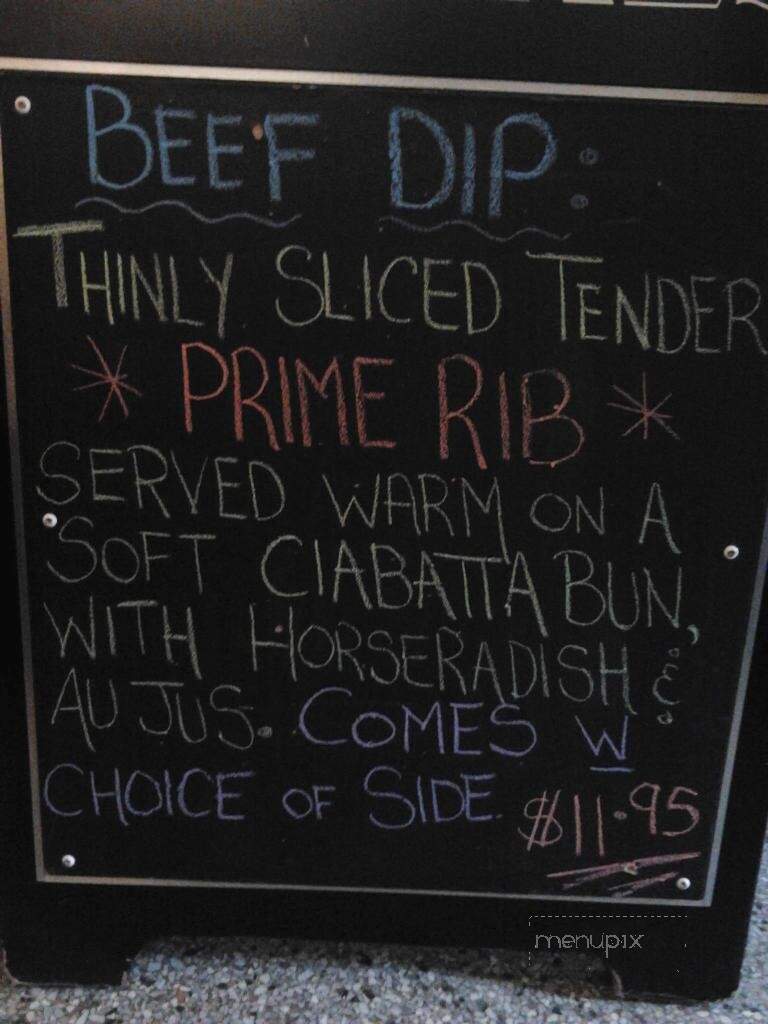 BEEF DIP:
THINLY SLICED TENDER
* PRIME RIB *
SERVED WARM ON A
SOFT CIABATTA BUN,
WITH HORSERADISH &
AU JUS. COMES W
CHOICE OF SIDE. $11.95
menupix